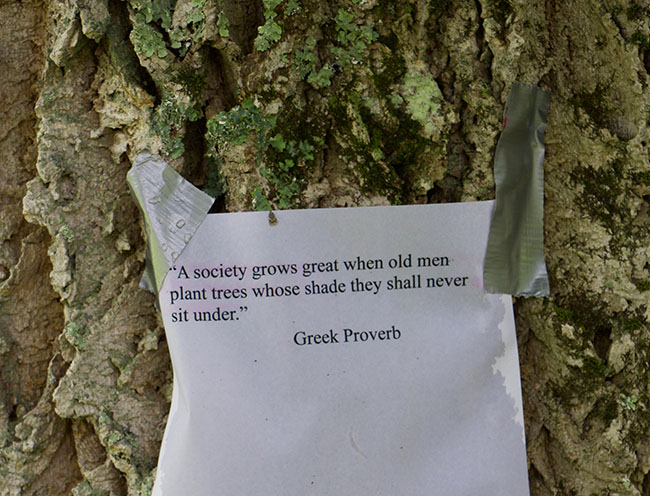 “A society grows great when old men
plant trees whose shade they shall never
sit under.”
Greek Proverb